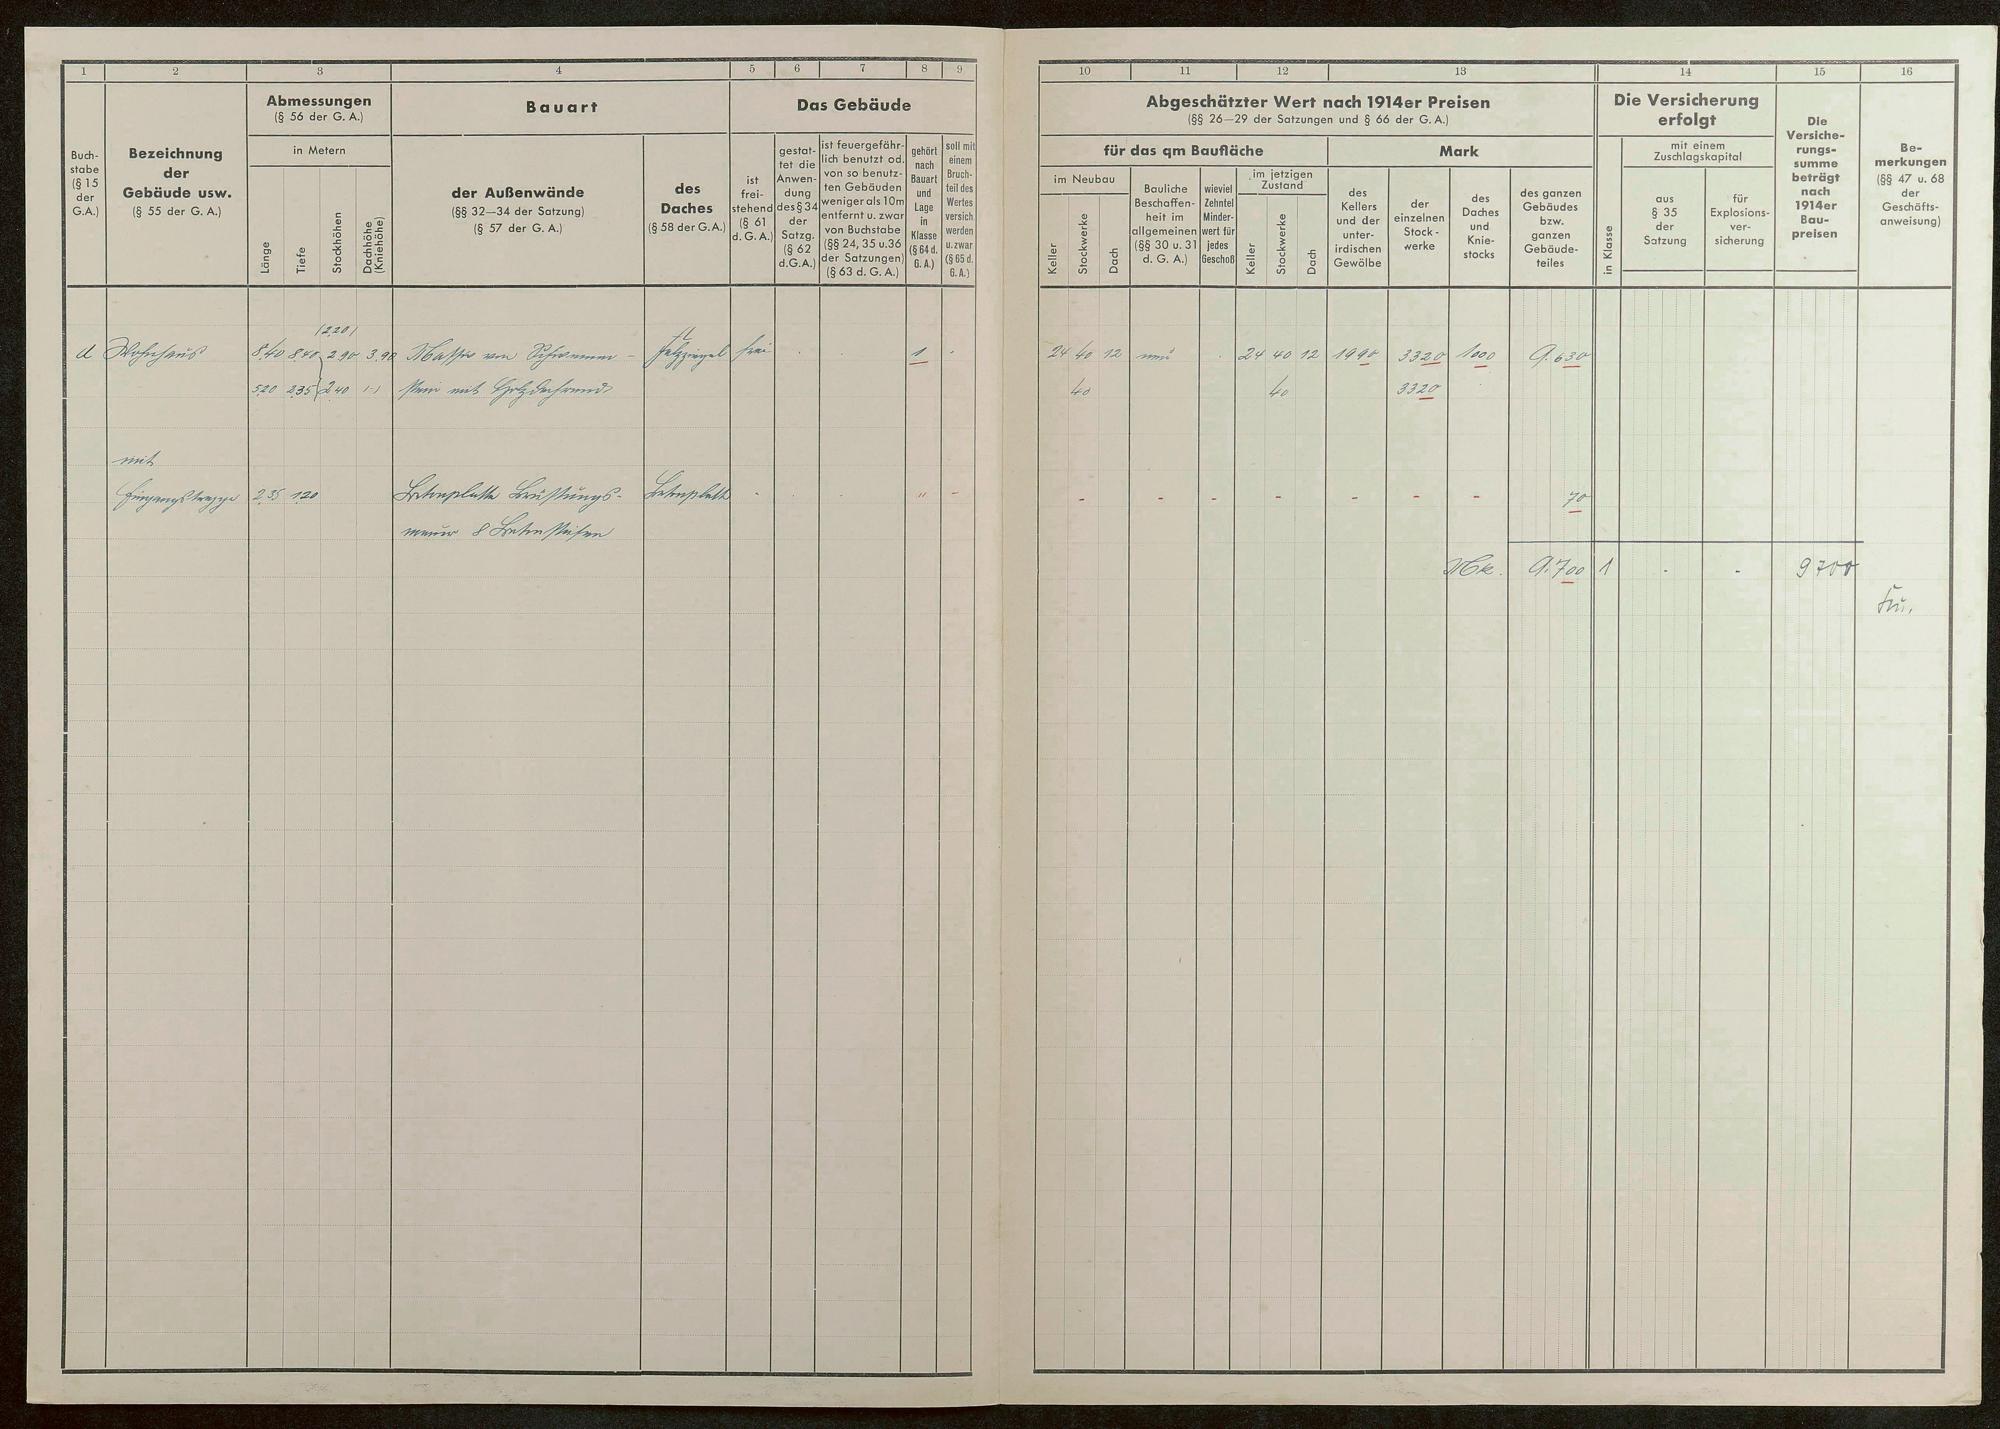 1 2 3 4 5 6 7 8 9
Buch-
stabe
(§ 15
der
G.A.)
Bezeichnung
der
Gebäude usw.
(§ 55 der G. A.)
Abmessungen
(§ 56 der G. A.)
in Metern
Länge
Tiefe
Stockhöhen
Dachhöhe
(Kniehöhe)
Bauart
der Außenwände
(§§ 32—34 der Satzung)
(§ 57 der G. A.)
des
Daches
(§ 58 der G.A.)
Das Gebäude
ist
frei-
stehend
(§ 61
d. G. A.)
gestat-
tet die
Anwen-
dung
des § 34
der
Satzg.
(§ 62
d.G.A.)
ist feuergefähr-
lich benutzt od.
von so benutz-
ten Gebäuden
weniger als 10m
entfernt u. zwar
von Buchstabe
(§§ 24, 35 u.36
der Satzungen)
(§ 63 d. G. A.)
gehört
nach
Bauart
und
Lage
in
Klasse
(§ 64 d.
G. A.)
soll mit
einem
Bruch-
teil des
Wertes
versich.
werden
u. zwar
(§ 65 d.
G. A.)
(2.20)
d Wohnhaus 8.40 8.40 2.90 3.90 Massiv von Schwemm- Falzziegel frei · · 1 ·
5.20 2.35 2.40 (-) stein mit
mit
Eingangstreppe 2.35 1.20 Betonplatte Brüstungs- Betonplatte - · · " -
mauer 8 Betonstufen
10 11 12 13 14 15 16
Abgeschätzter Wert nach 1914er Preisen
(§§ 26—29 der Satzungen und § 66 der G. A.)
für das qm Baufläche
Mark
im Neubau
Keller
Stockwerke
Dach
Bauliche
Beschaffen-
heit im
allgemeinen
(§§ 30 u. 31
d. G. A.)
wieviel
Zehntel
Minder-
wert für
jedes
Geschoß
im jetzigen
Zustand
Keller
Stockwerke
Dach
des
Kellers
und der
unter-
irdischen
Gewölbe
der
einzelnen
Stock-
werke
des
Daches
und
Knie-
stocks
des ganzen
Gebäudes
bzw.
ganzen
Gebäude-
teiles
Die Versicherung
erfolgt
in Klasse
mit einem
Zuschlagskapital
aus
§ 35
der
Satzung
für
Explosions-
ver-
sicherung
Die
Versiche-
rungs-
summe
beträgt
nach
1914er
Bau-
preisen
Be-
merkungen
(§§ 47 u. 68
der
Geschäfts-
anweisung)
24 40 12 neu · 24 40 12 1990 3320 1000 9.630
40 40 3320
- - - - - - - 70
Mk. 9.700 1 - - 9700